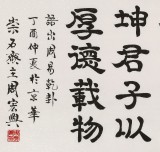 坤君子以
厚德載物
語出周易乾卦
丁酉仲夏於京華
崇石齋主周宏興